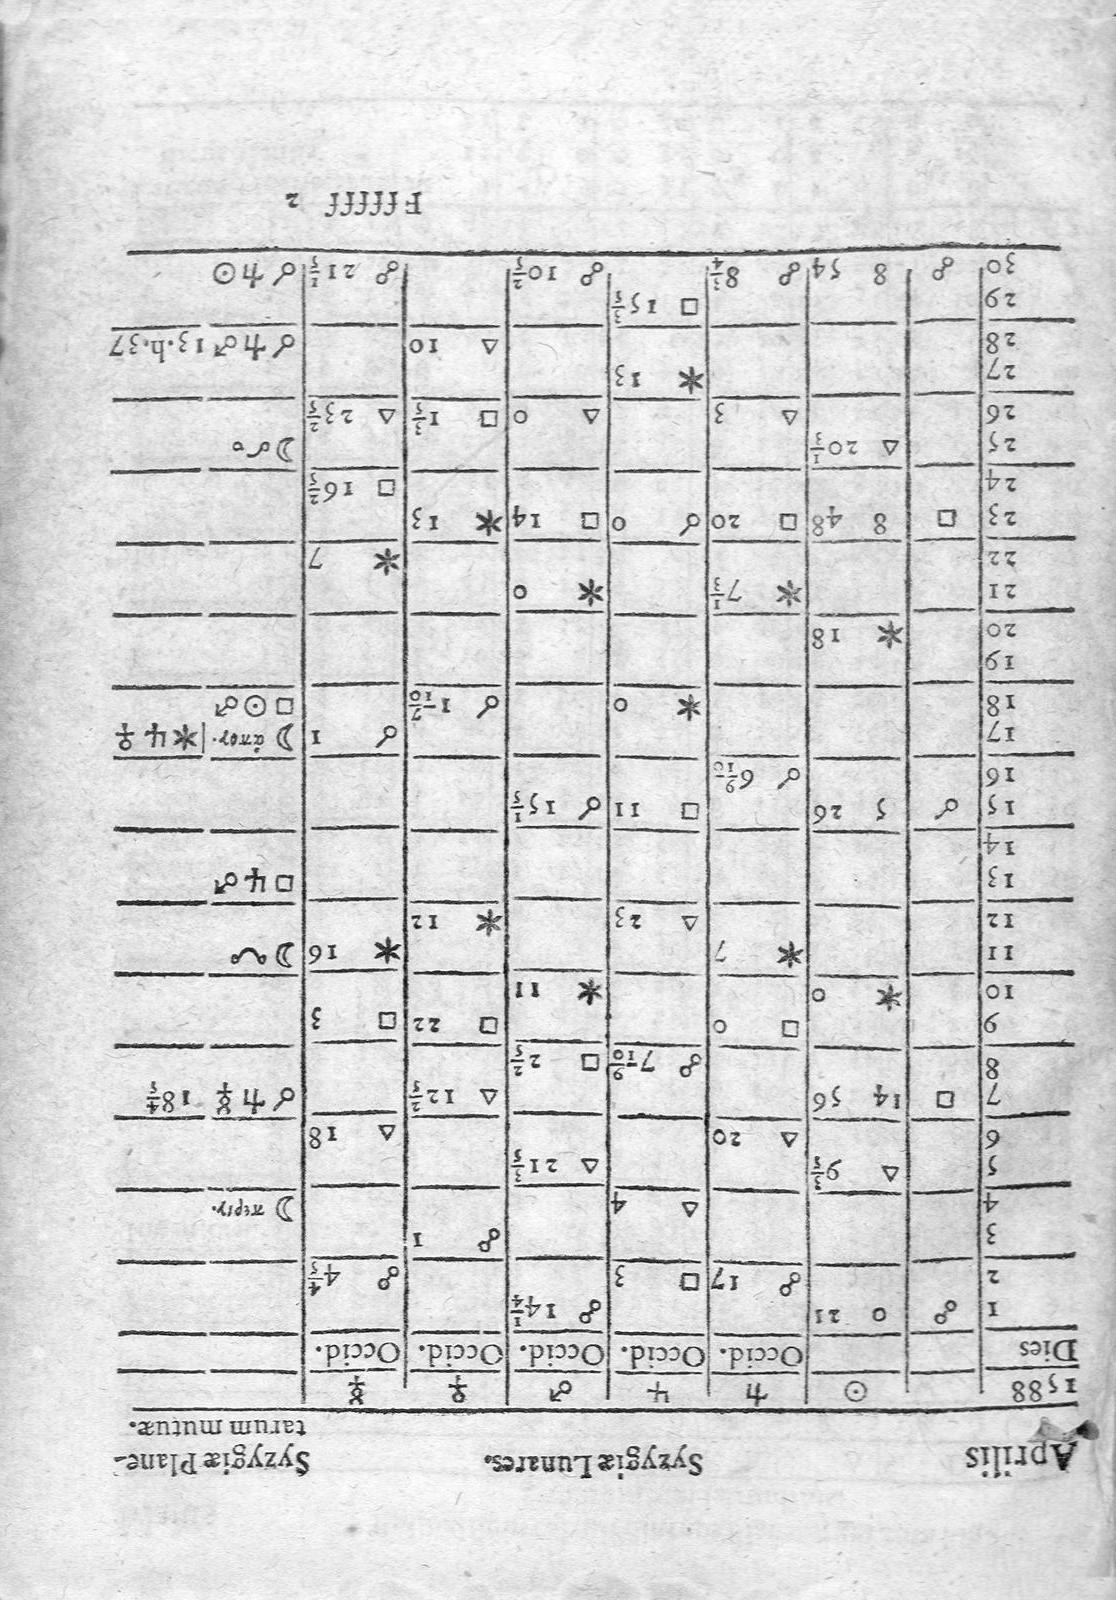 Aprilis Syzygiæ Lunares. Syzygiæ Plane-
tarum mutuæ.
1588 ☉ ♄ ♃ ♂ ♀ ☿
Dies Occid. Occid. Occid. Occid. Occid.
1 ☍ 0 21 ☍ 14 1/4
2 ☍ 17 □ 3 ☍ 4 4/5
3 ☍ 1
4 △ 4 ☽ περιγ.
5 △ 9 3/5 △ 21 3/5
6 △ 20 △ 18
7 □ 14 56 △ 12 2/5 ☌ ♄ ☿ 18 4/5
8 ☍ 7 9/10 □ 2 2/5
9 □ 0 □ 22 □ 3
10 ✶ 0 ✶ 11
11 ✶ 7 ✶ 16 ☽ ☋
12 △ 23 ✶ 12
13 □ ♃ ♂
14
15 ☌ 5 26 □ 11 ☌ 15 1/5
16 ☌ 6 9/10
17 ☌ 1 ☽ ἀπογ. | ✶ ♃ ♀
18 ✶ 0 ☌ 1 7/10 □ ☉ ♂
19
20 ✶ 18
21 ✶ 7 1/3 ✶ 0
22 ✶ 7
23 □ 8 48 □ 20 ☌ 0 □ 14 ✶ 13
24 □ 16 2/5
25 △ 20 1/3 ☽ ☊
26 △ 3 △ 0 □ 1 3/5 △ 23 2/5
27 ✶ 13
28 △ 10 ☌ ♄ ♂ 13.h.37
29 □ 15 3/5
30 ☍ 8 54 ☍ 8 3/4 ☍ 10 2/5 ☍ 21 1/5 ☌ ♄ ☉
Ffffff 2